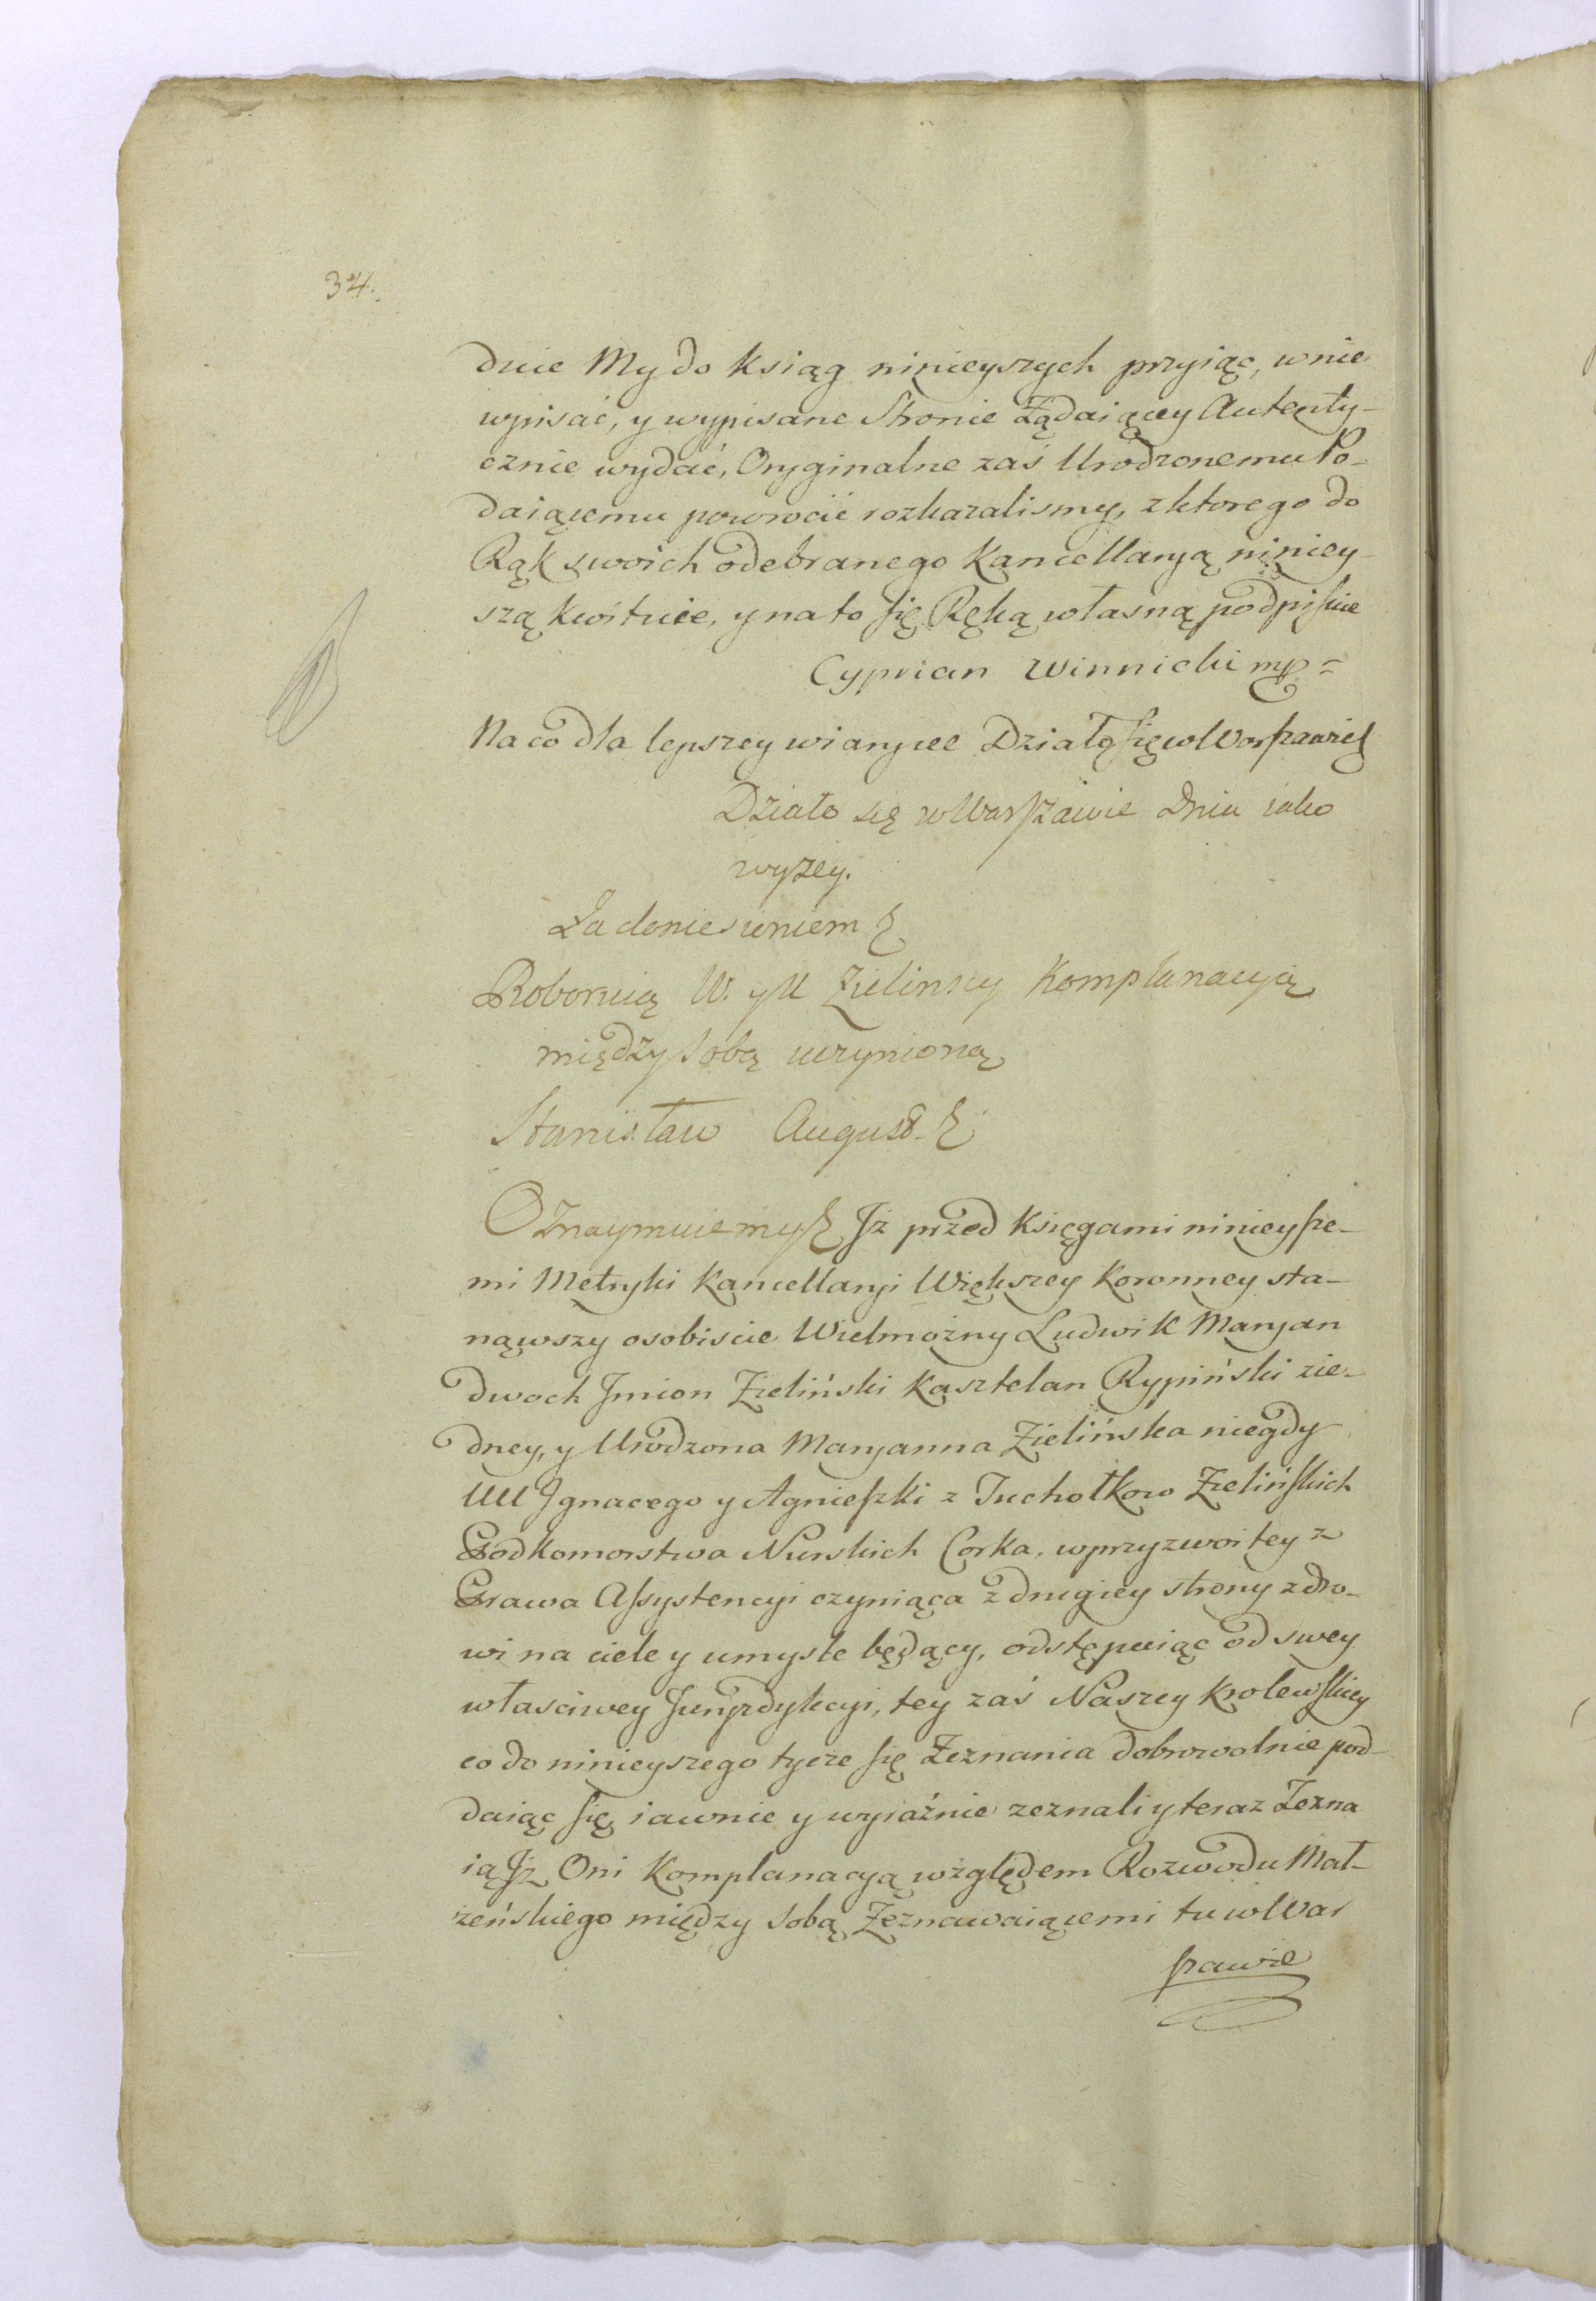 34.
duie My do Ksiąg ninieyszych przyiąc, w nie
wpisać, y wypisane Stronie Żądaiącey Autenty-
cznie wydać, Oryginalne zaś Urodzonemu Po-
daiącemu powrocić rozkazalismy, z ktorego do
Rąk swoich odebranego Kancellaryą niniey-
szą kwituie, y na to się Ręką własną podpisuie
Cyprian Winnicki mp=
Na co dla lepszey wiary &c Działo się w Warszawie
Działo się w Warszawie Dnia iako
wyżey.
Za doniesieniem &
Roboruią W. y U Zielinscy Komplanacyią
między sobą uczynioną
Stanisław August &
Oznaymuiemy & Jż przed Księgami ninieysze-
mi Metryki Kancellaryi Większey Koronney sta-
nąwszy osobiscie Wielmożny Ludwik Maryan
dwoch Jmion Zieliński Kasztelan Rypiński zie-
dney, y Urodzona Maryanna Zielińska niegdy
UU Jgnacego y Agnieszki z Tuchołkow Zielińskich
Podkomorstwa Nurskich Corka, w przyzwoitey z
Prawa Assystencyi czyniąca z drugiey strony zdro-
wi na ciele y umysle będący, odstępuiąc od swey
własciwey Juryzdykcyi, tey zaś Naszey Krolewskiey
co do ninieyszego tycze się Zeznania dobrowolnie pod-
daiąc się, iawnie y wyraźnie zeznali y teraz Zezna
ią Jż Oni Komplanacyą względem Rozwodu Mał-
żeńskiego między sobą Zeznawaiącemi tu w War
szawie